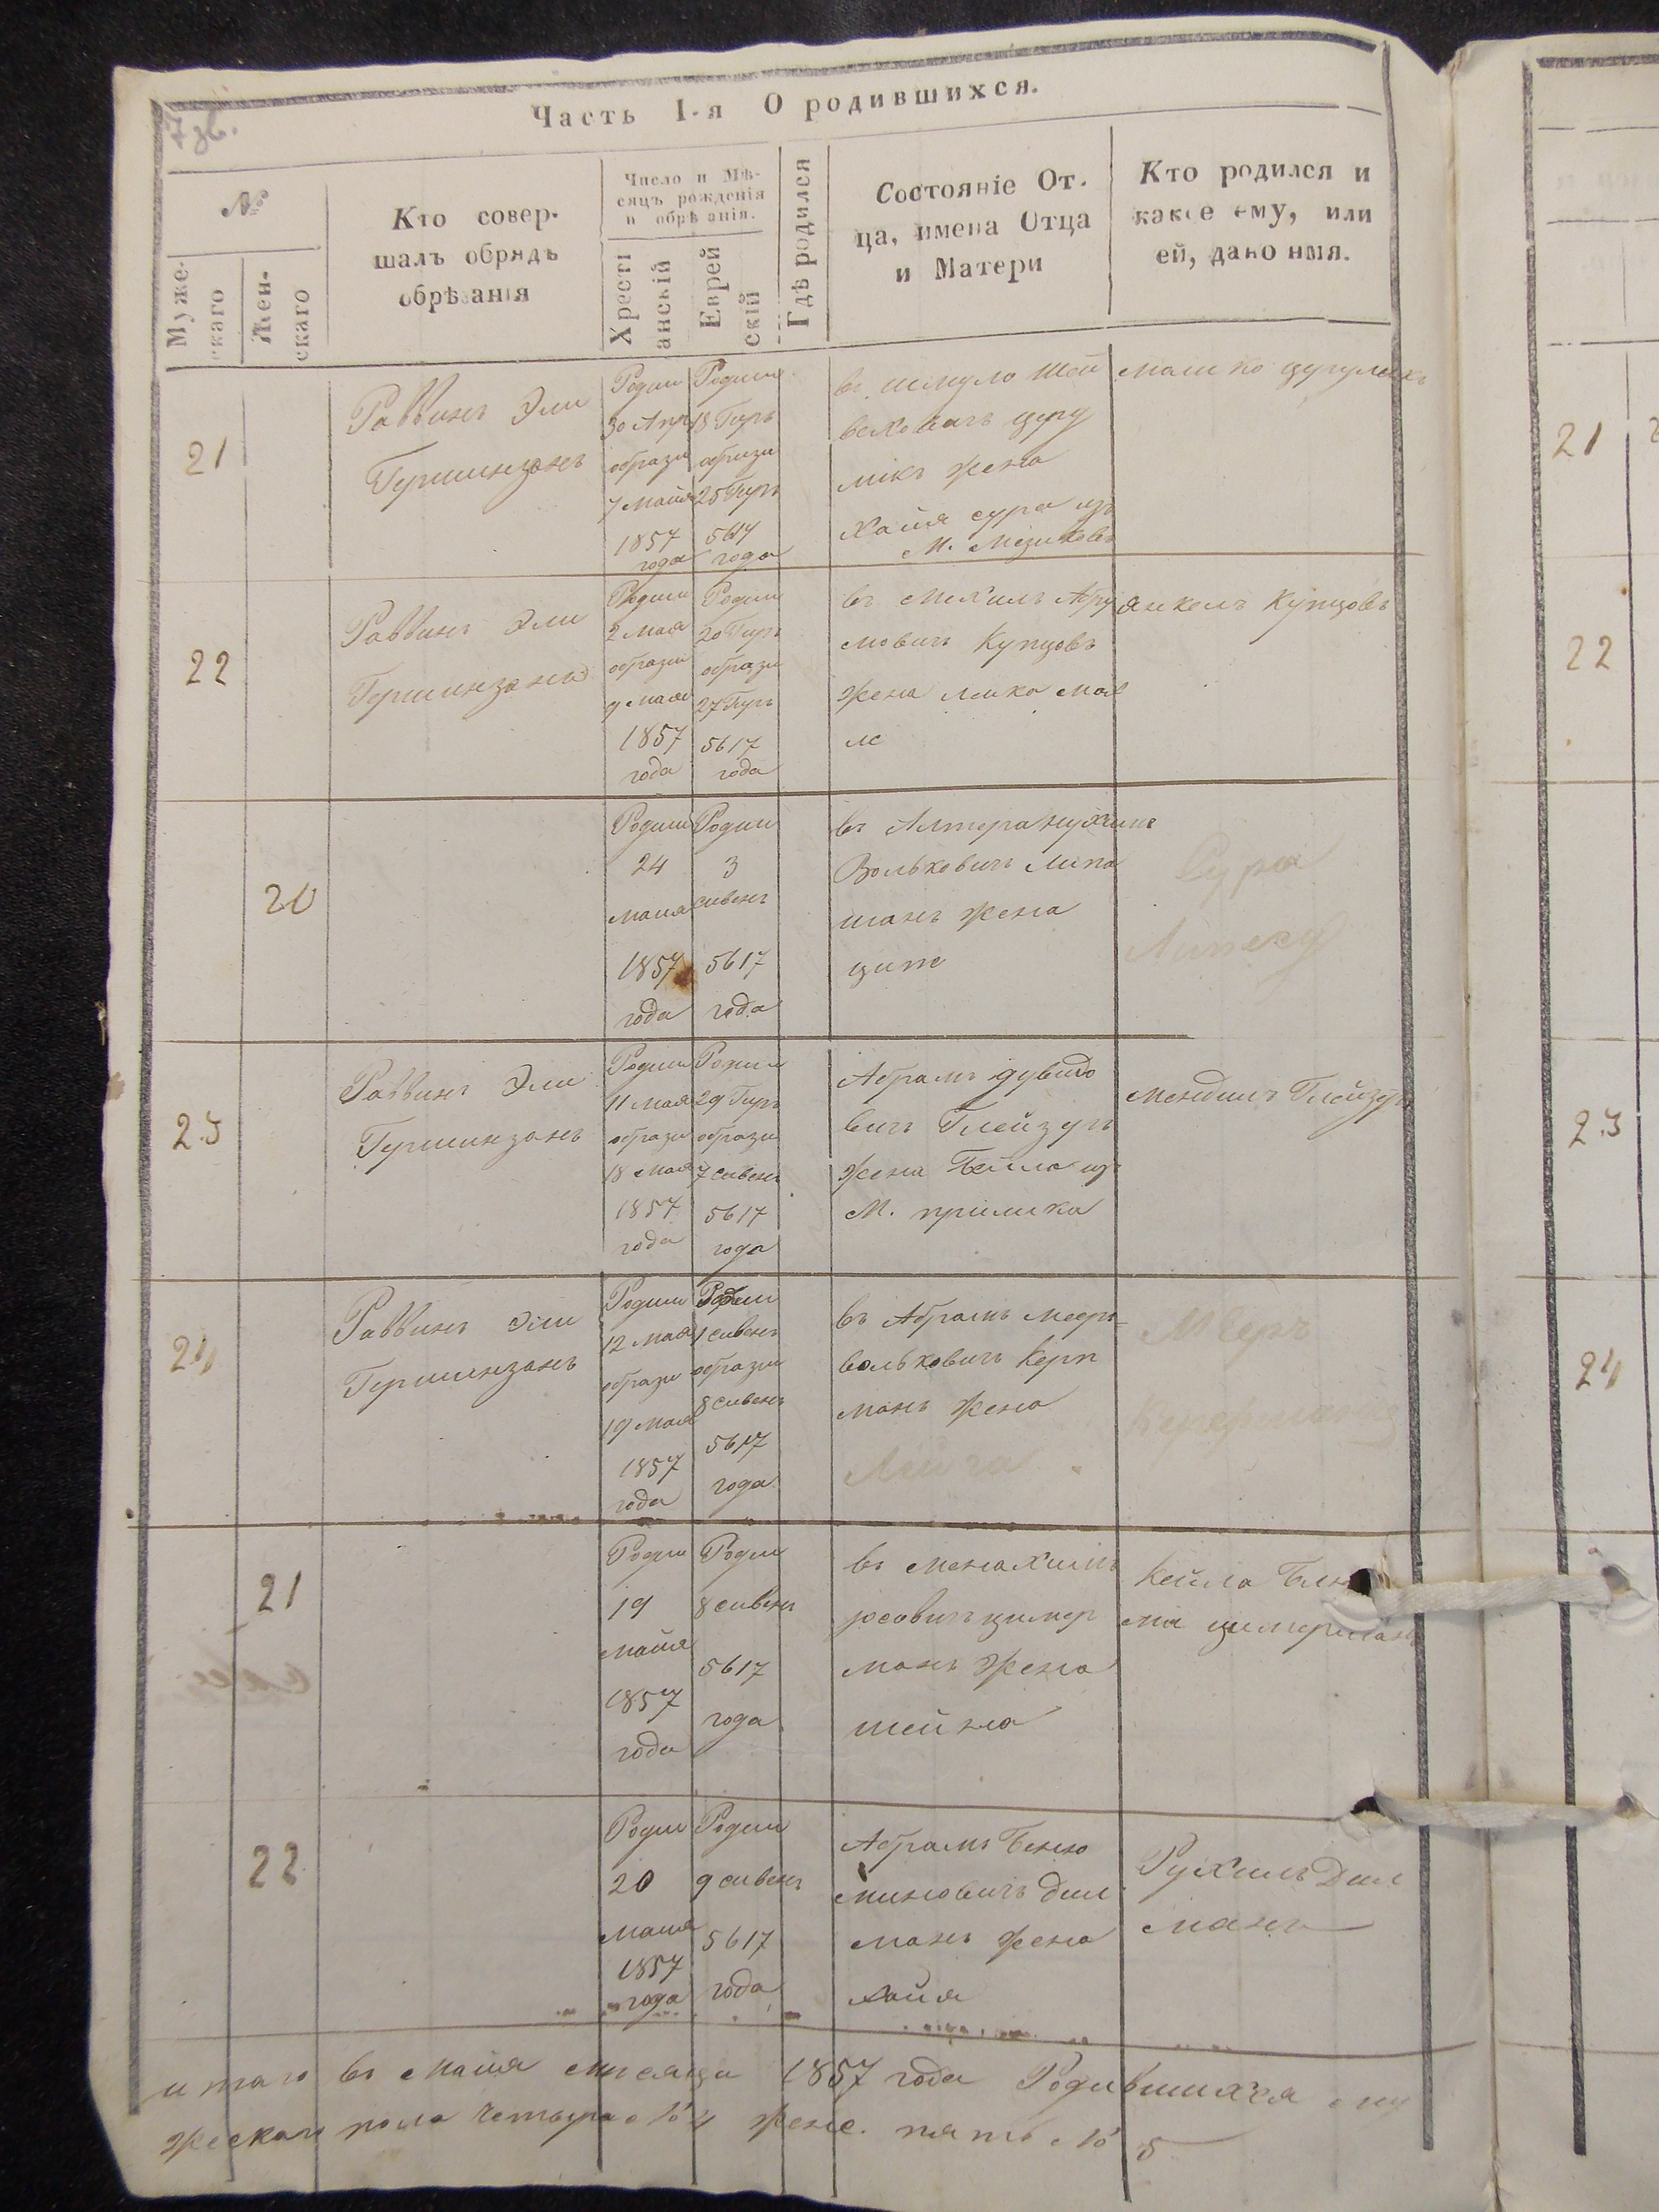 7 об.
Часть I-я О родившихся.
№
Муже-
скаго
Жен-
скаго
Кто совер-
шалъ обрядъ
обрѣзанія
Число и Мѣ-
сяцъ рожденія
и обрѣзанія.
Христі
анскій
Еврей
скій
Гдѣ родился
Состояніе От-
ца, имена Отца
и Матери
Кто родился и
какое ему, или
ей, дано имя.
21
Раввинъ Эли
Гершинзонъ
Родил
30 Апр
образи
7 Майя
1857
года
Родил
18 Гиръ
образи
25 Гиръ
5617
года
въ Шмуло Шой
мікъ жена
Хайя сура изъ
22
Раввинъ Эли
Гершинзонъ
Родил
2 мая
образи
9 мая
1857
года
Родил
20 Гиръ
образи
27 Гиръ
5617
года
въ Мехиль Абру
мовичъ Купцовъ
жена
Янкель Купцовъ
20
Родил
24
майя
1857
года
Родил
3
сивенъ
5617
года
Вольковичъ Липа
шанъ жена
ципе
Сура
23
Раввинъ Эли
Гершинзонъ
Родил
11 Мая
образи
18 мая
1857
года
Родил
29 Гиръ
образи
7 сивенъ
5617
года
Абрамъ дувидо
вичъ Глейзеръ
жена Бейла изъ
М. прилика
Мендиль Глейзеръ
24
Раввинъ Эли
Гершинзонъ
Родил
12 мая
образи
19 мая
1857
года
Родил
1 сивенъ
образи
8 сивенъ
5617
года
въ Абрамъ Мееръ
вольковичъ Керп
манъ жена
21
Родил
19
майя
1857
года
Родил
8 сивенъ
5617
года
въ Менахимъ
росовичъ цимер
манъ жена
шейна
Кейла Блю
ма цимерманъ
22
Родил
20
майя
1857
года
Родил
9 сивенъ
5617
года
Абрамъ Беню
миновичъ Дил
манъ жена
хайя
Рухиль Дил
манъ
итаго въ майя мисяци 1857 года Родившихся му
жескаго пола четыре № 4 женс. пять № 5
21
22
23
24